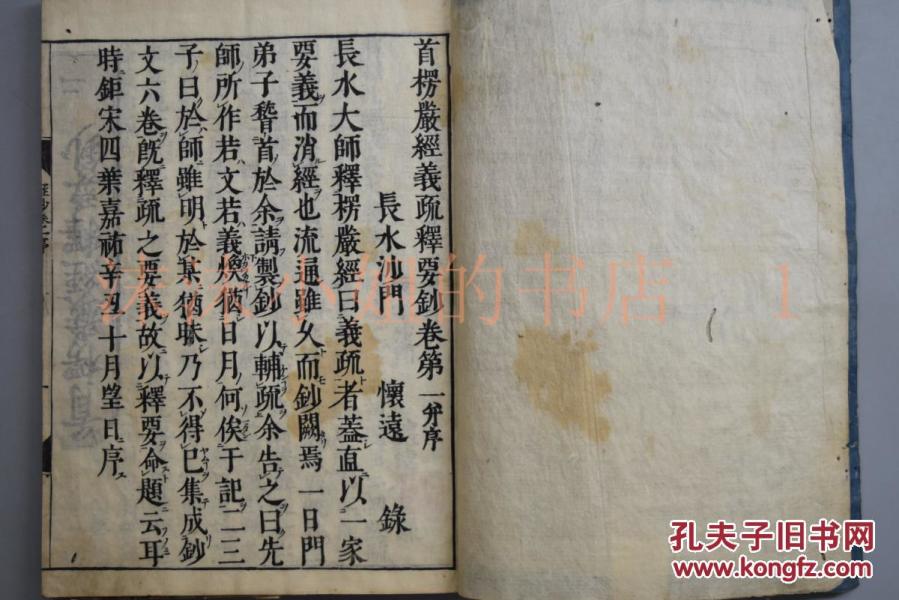 首楞嚴經義疏釋要鈔卷第一并序
長水沙門 懷遠 錄
長水大師釋楞嚴經曰義疏者蓋直以一家
要義而消經也流通雖久而鈔闕焉一日門
弟子稽首於余請製鈔以輔疏余告之曰先
師所作若文若義煥猶日月何俟于記二三
子曰於師雖明於某猶昧乃不得已集成鈔
文六卷既釋疏之要義故以釋要命題云耳
時鉅宋四葉嘉祐辛丑十月望日序
孔夫子旧书网
www.kongfz.com
小姐的书店 1